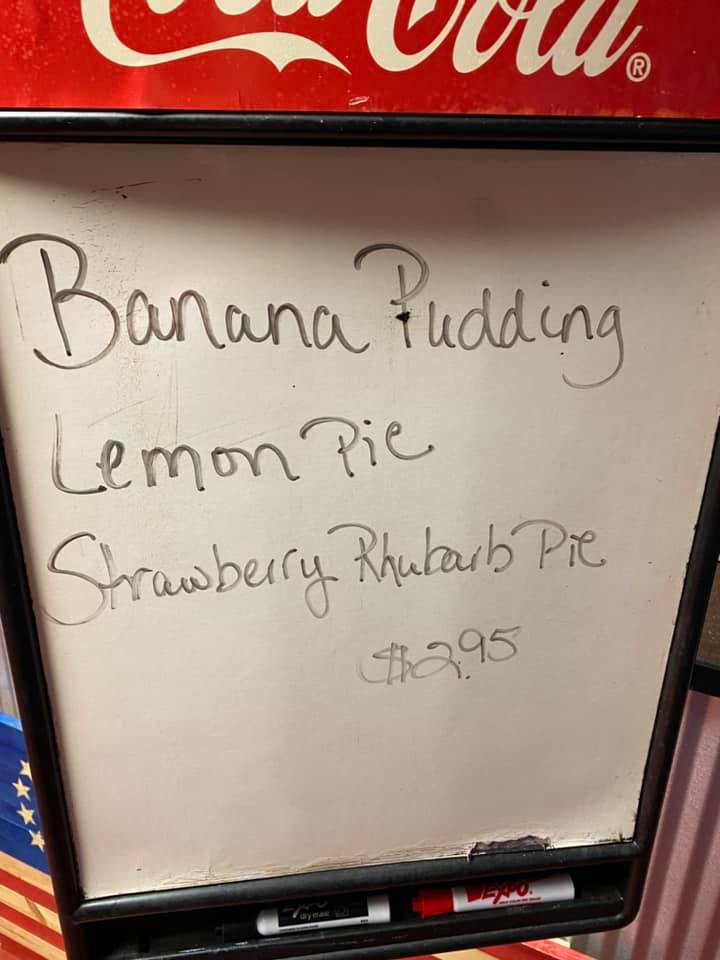 Coca-Cola®
Banana Pudding
Lemon Pie
Strawberry Rhubarb Pie
$2.95
EXPO
dry erase
EXPO.